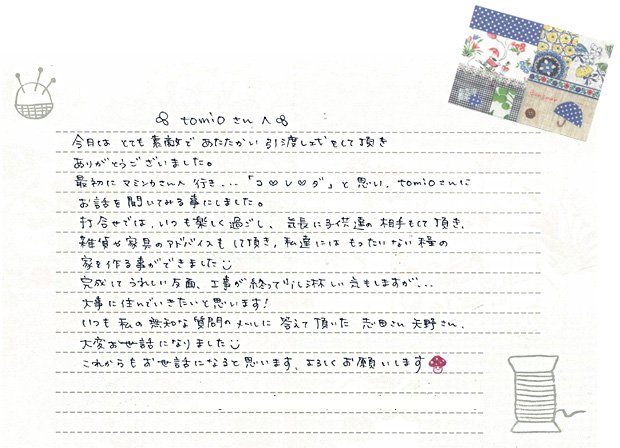 tomioさんへ
今日は とても 素敵で あたたかい 引渡し式をして頂き
ありがとうございました。
最初に マミンカさんへ 行き...「コ♡レ♡ダ」と思い、tomioさんに
お話を聞いてみる事にしました。
打合せでは、いつも楽しく過ごし、気長に子供達の相手もして頂き、
雑貨や家具のアドバイスも して頂き、私達には もったいない程の
家を作る事ができました
完成して うれしい反面、工事が終って少し淋しい気もしますが...
大事に住んでいきたいと思います!
いつも 私の無知な質問のメールに 答えて頂いた 志田さん 天野さん、
大変お世話になりました
これからもお世話になると思います、よろしくお願いします